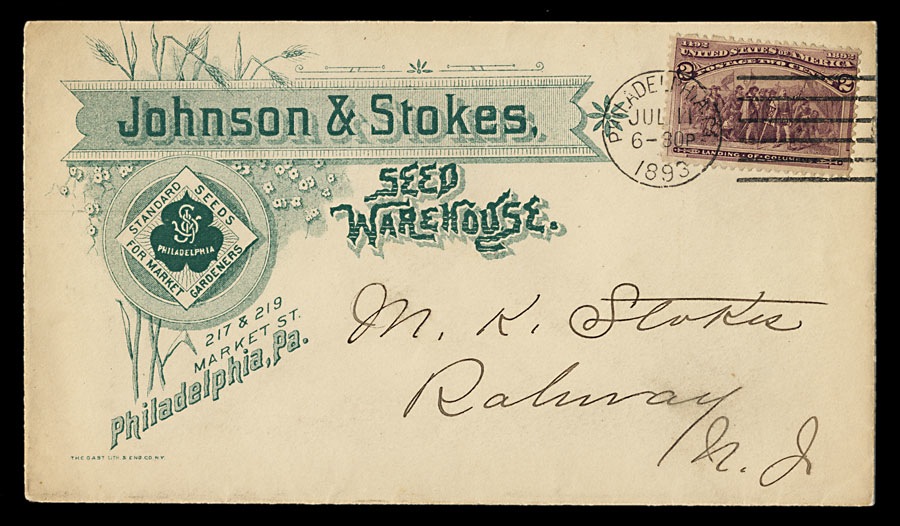 1492 UNITED STATES OF AMERICA 1892
2 POSTAGE TWO CENTS 2
LANDING OF COLUMBUS
PHILADELPHIA, PA.
JUL 11
6-30P
1893
Johnson & Stokes,
SEED
WAREHOUSE.
STANDARD SEEDS
PHILADELPHIA
FOR MARKET GARDENERS
217 & 219
MARKET ST.
Philadelphia, Pa.
M. K. Stokes
Rahway
N. J.
THE GAST LITH. & ENG. CO. N.Y.